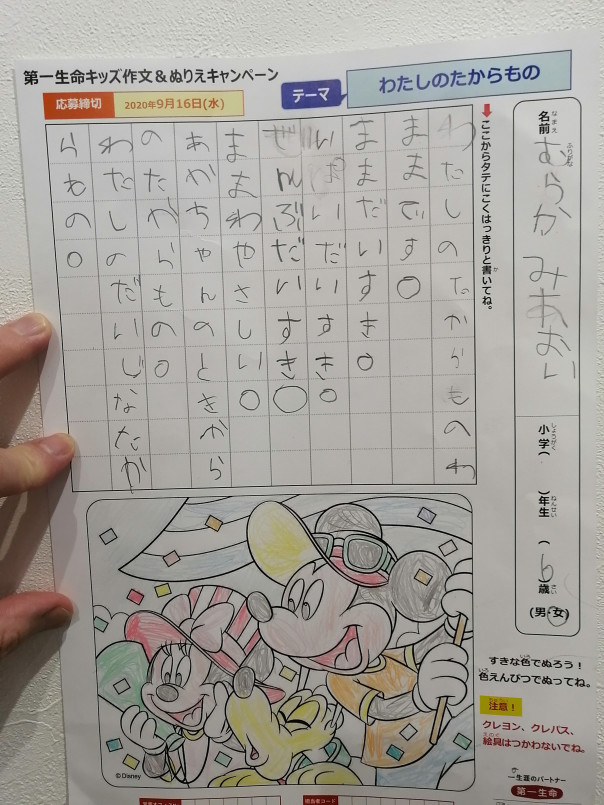 第一生命キッズ作文&ぬりえキャンペーン
応募締切 2020年9月16日(水)
テーマ わたしのたからもの
ここからタテにこくはっきりと書いてね。
わたしのたからものわ
ままです。
ままだいすき。
いぱいだいすき。
ぜんぶだいすき。
ままわやさしい。
あかちゃんのときから
のたからもの。
わたしのだいじなたか
らもの。
名前 むらか みあおい
小学( )年生 (6)歳 (男・女)
すきな色でぬろう!
色えんぴつでぬってね。
注意!
クレヨン、クレパス、
絵具はつかわないでね。
©Disney
一生涯のパートナー
第一生命